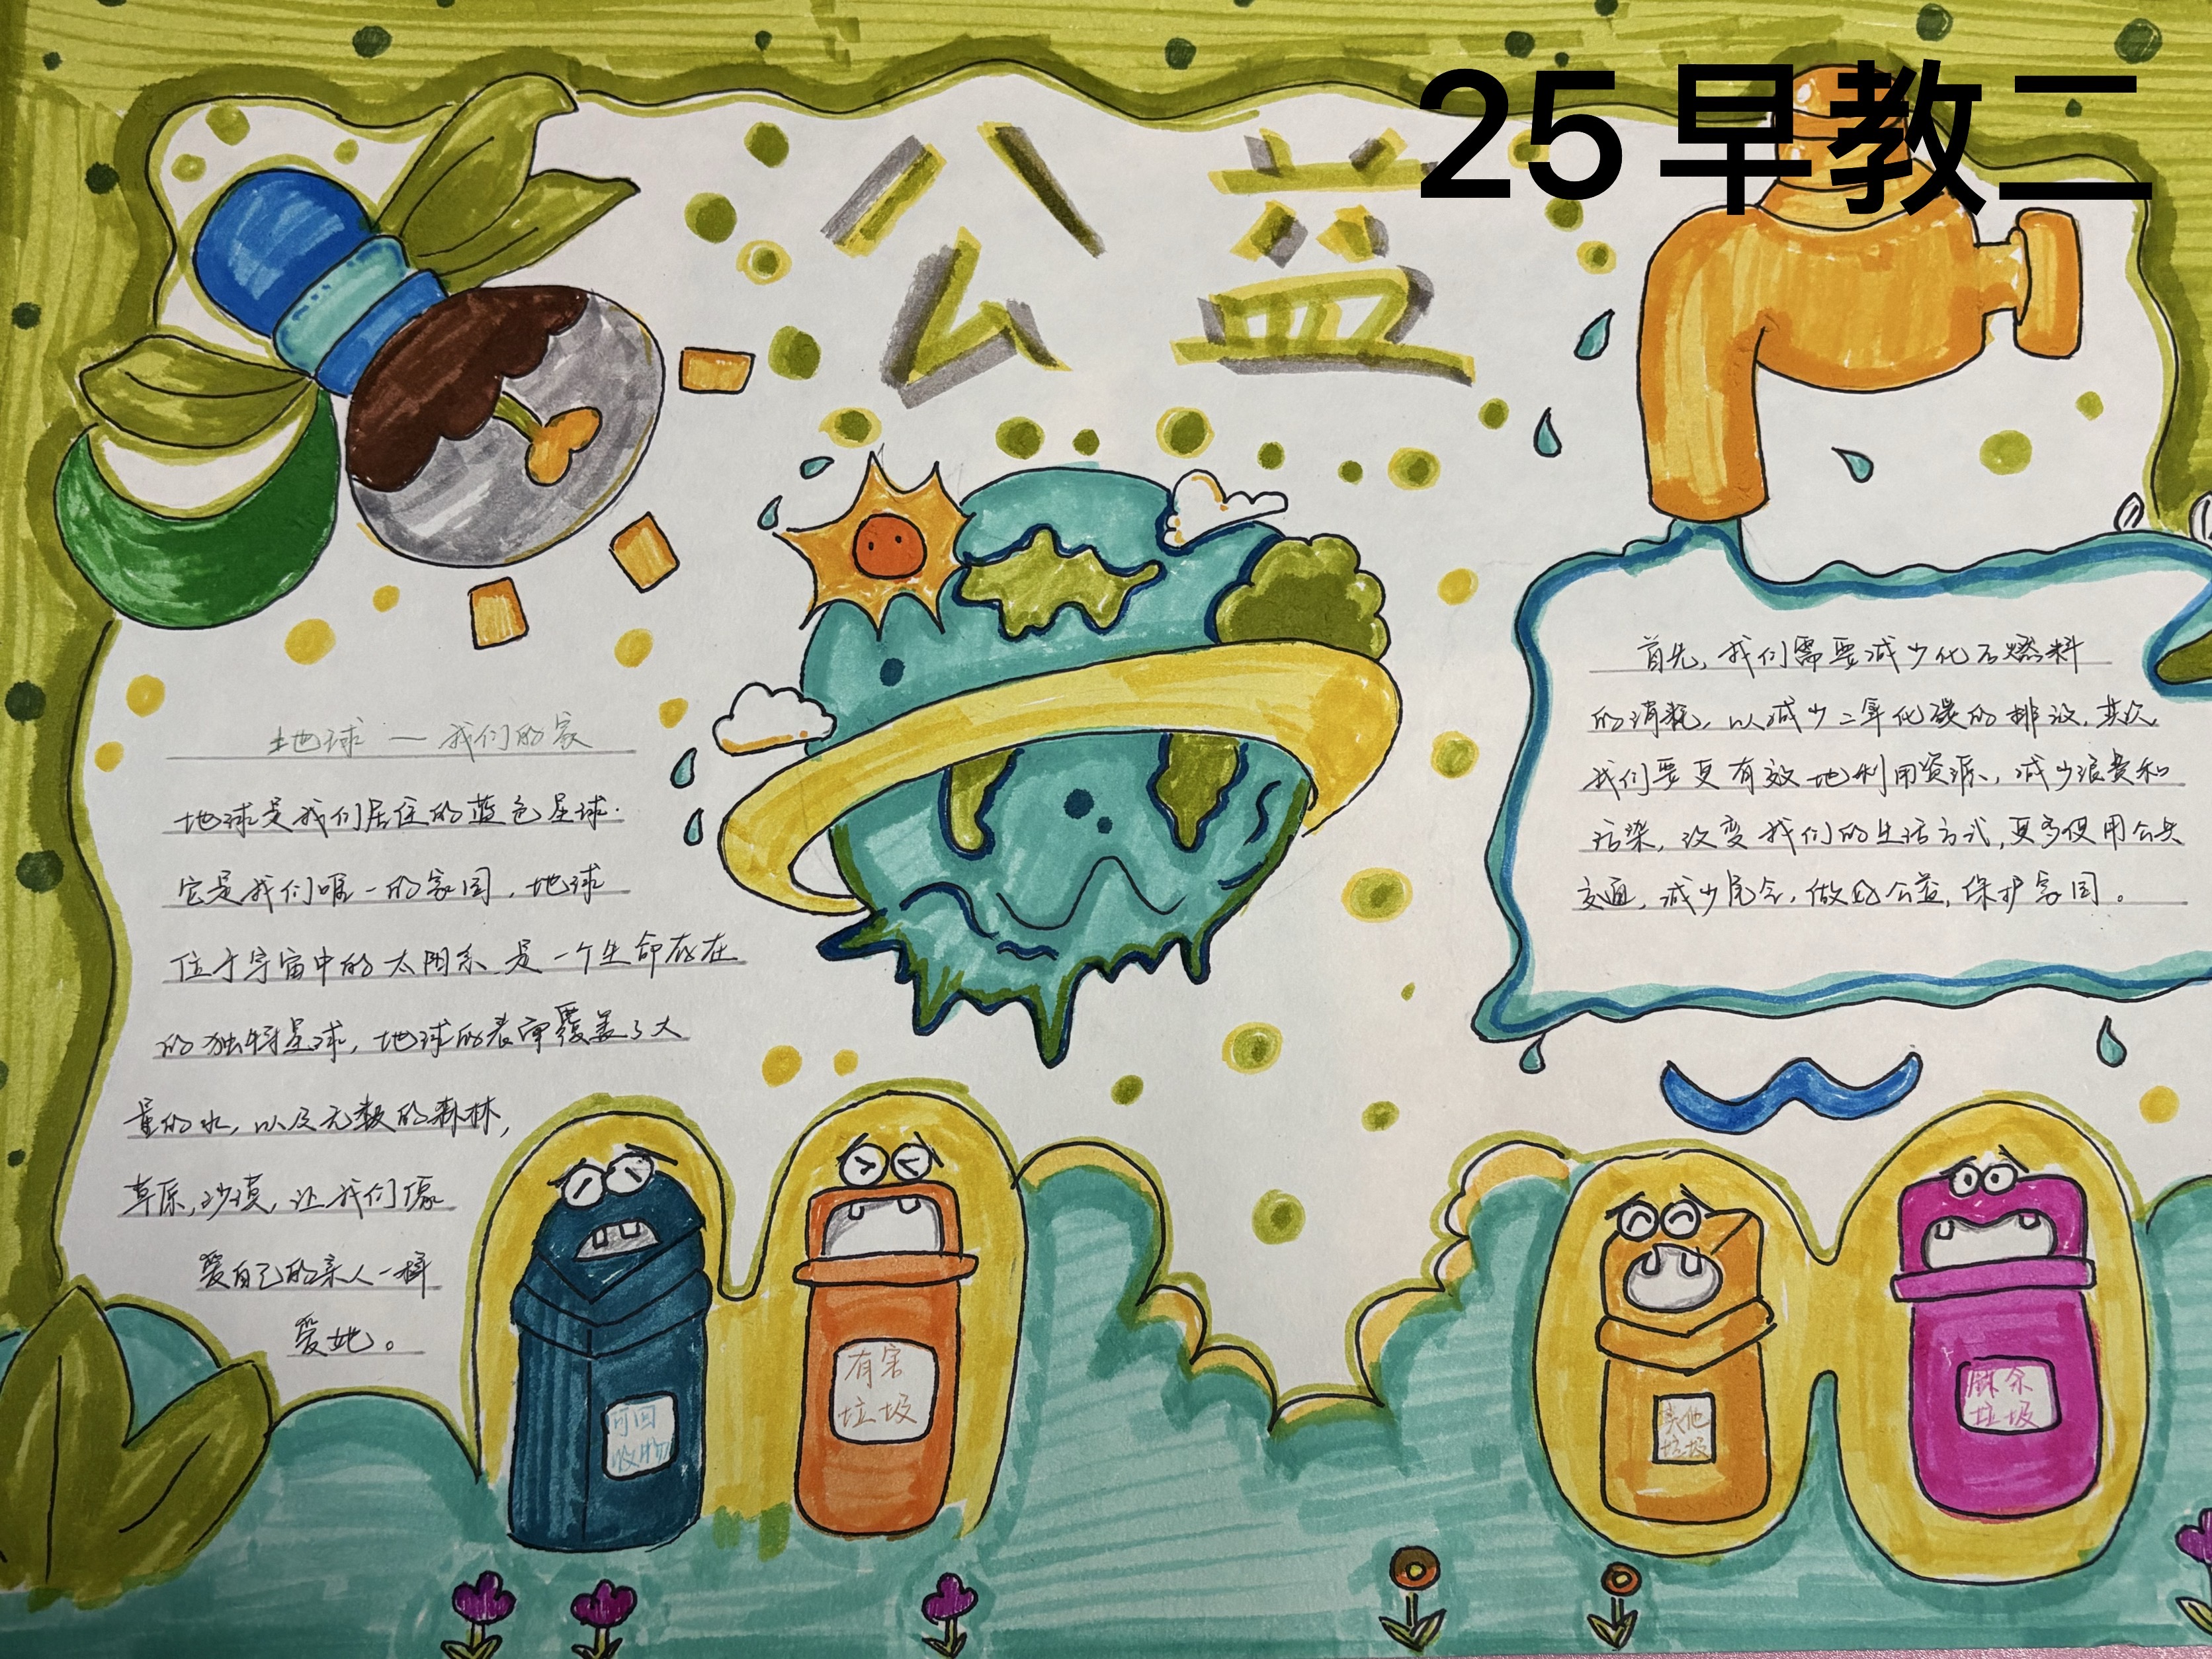 25早教二
公益
地球一我们的家
地球是我们居住的蓝色星球.
它是我们唯一的家园,地球
位于宇宙中的太阳系,是一个生命存在
的独特星球,地球的表面覆盖了大
量的水,以及无数的森林,
草原,沙漠,让我们像
爱自己的亲人一样
爱她。
首先,我们需要减少化石燃料
的消耗,以减少二氧化碳的排放.其次
我们要更有效地利用资源、减少浪费和
污染,改变我们的生活方式,更多使用公共
交通,减少肉食,做好公益,保护家园。
可回
收物
有害
垃圾
其他
垃圾
厨余
垃圾